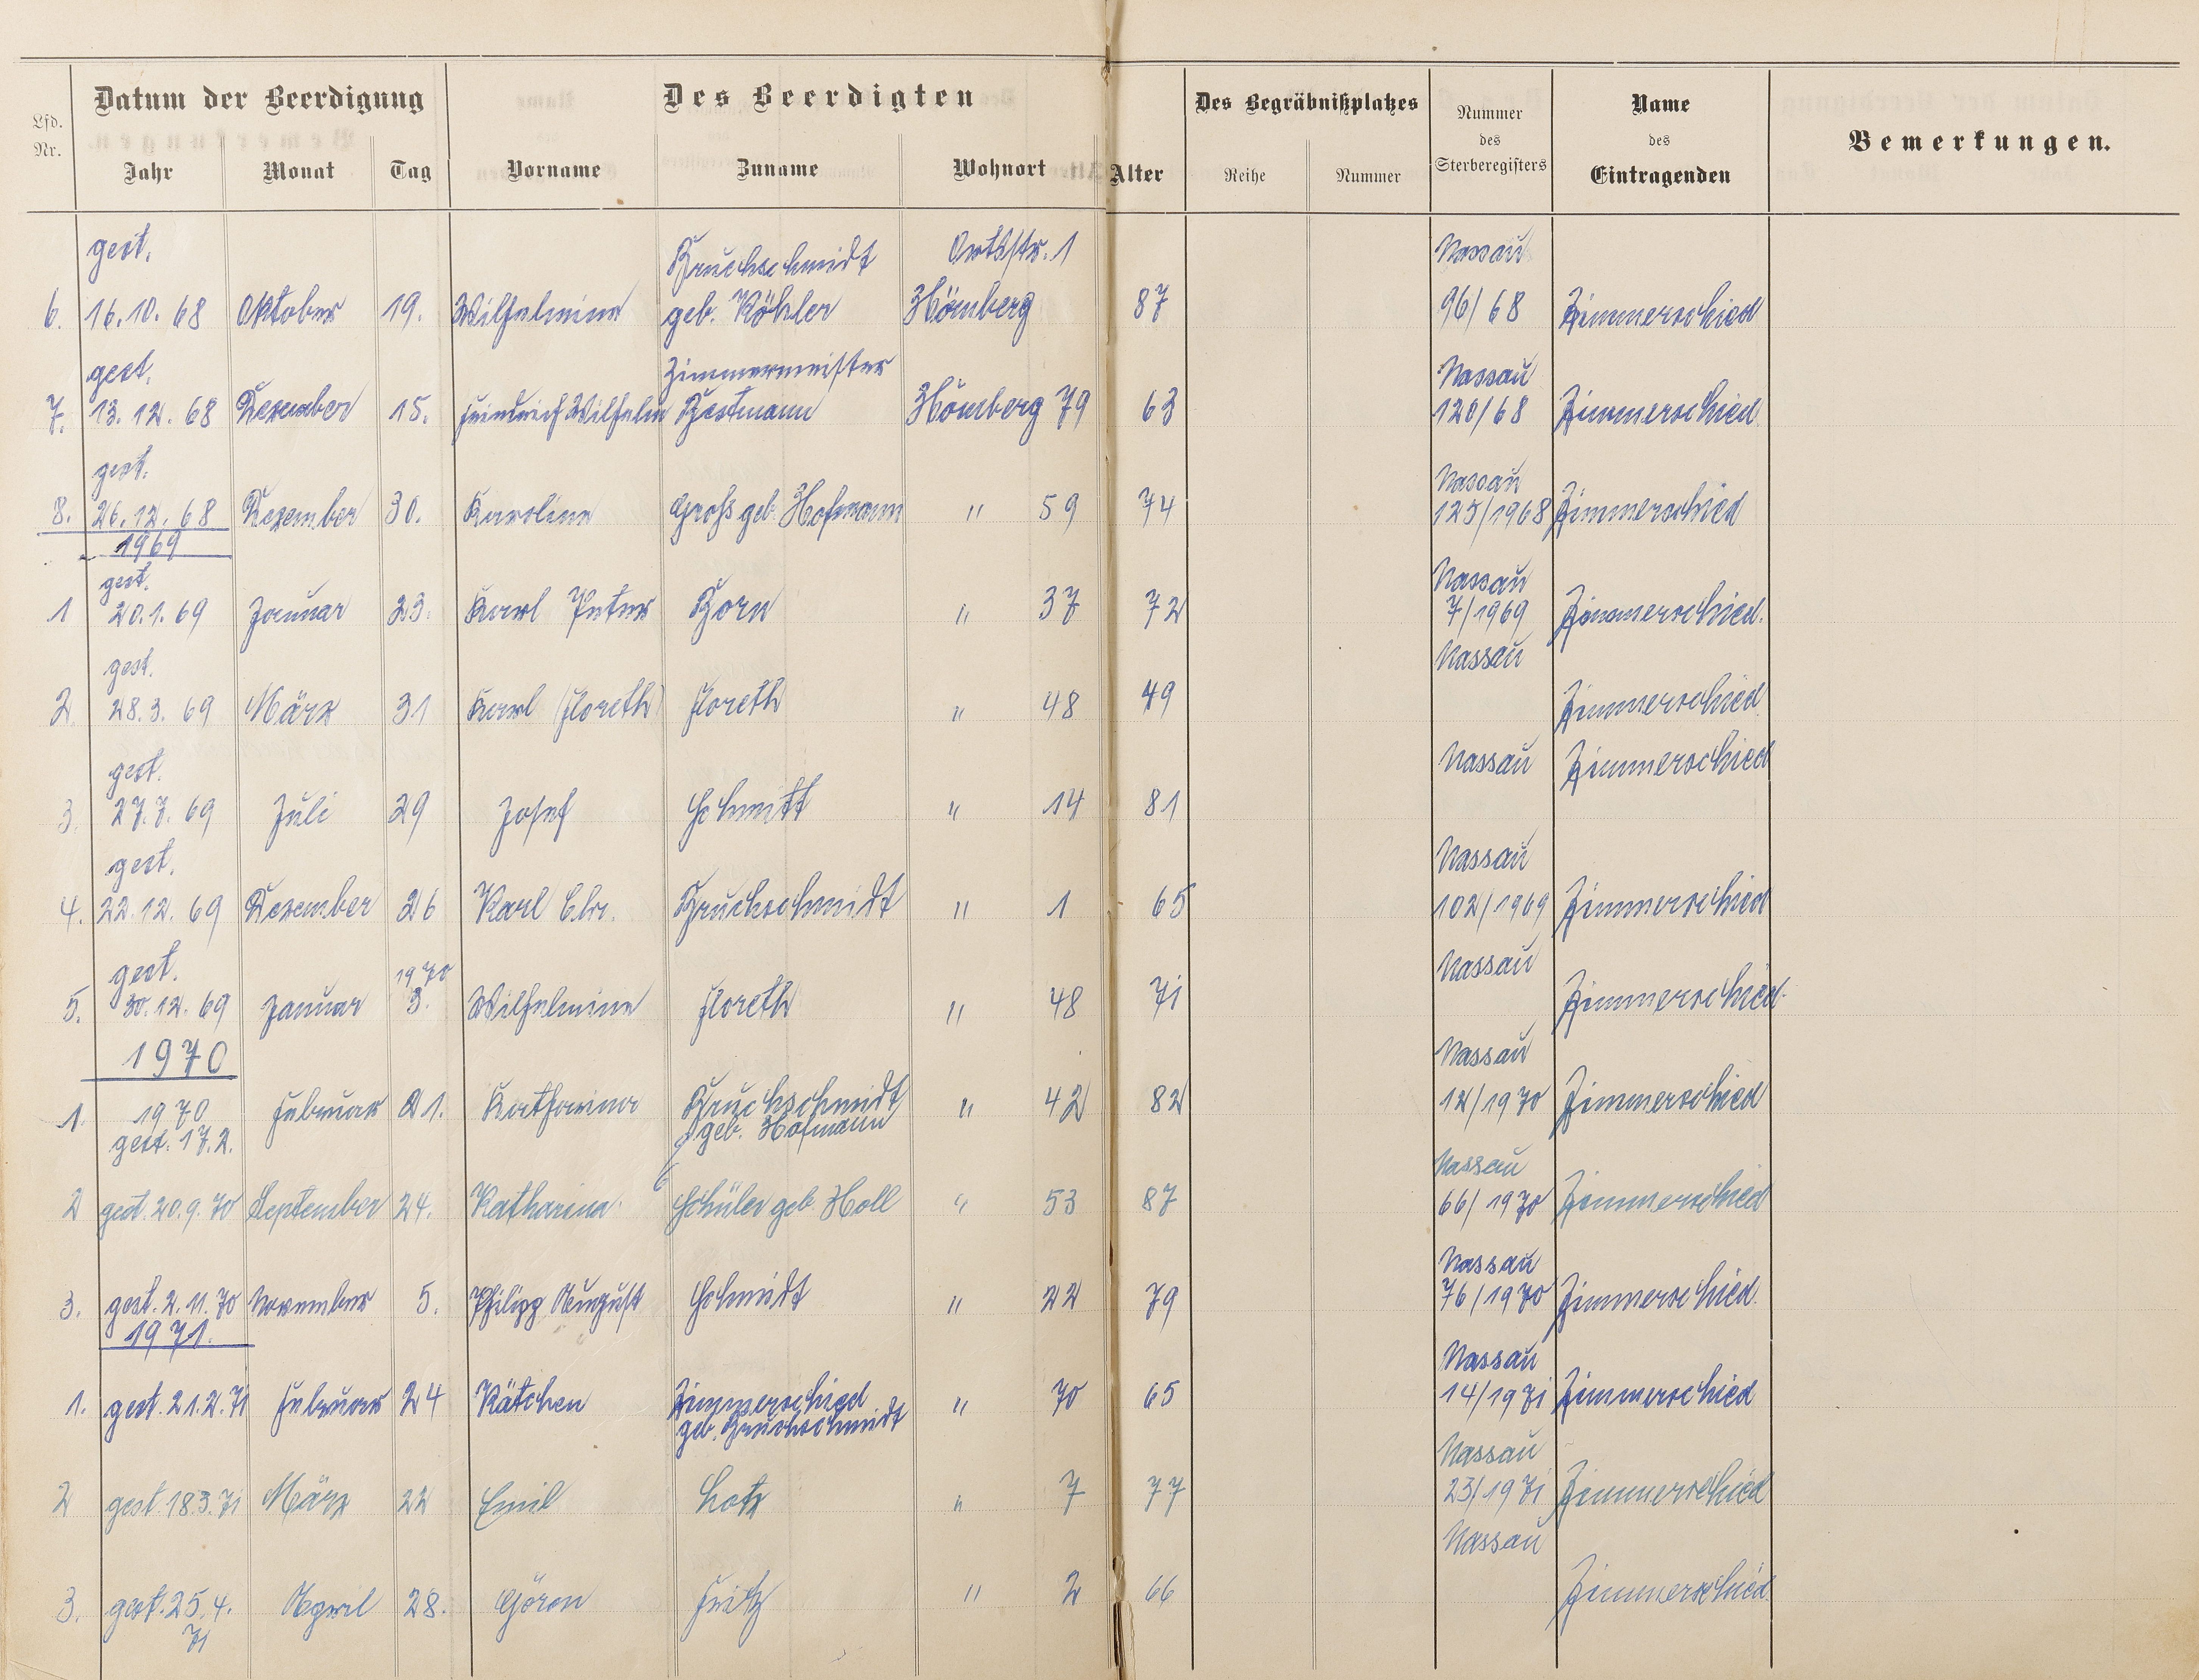 Datum der Beerdigung Des Beerdigten Des Begräbnißplatzes Nummer des Sterberegisters Name des Eintragenden Bemerkungen.
Lfd. Nr. Jahr Monat Tag Vorname Zuname Wohnort Alter Reihe Nummer
gest. Bruchschmidt Ortsstr. 1 Nassau
6. 16.10.68 Oktober 19. Wilhelmine geb. Köhler Hömberg 87 96/68 Zimmerschied
gest. Zimmermeister Nassau
7. 13.12.68 Dezember 15. Friedrich Wilhelm Hömberg 79 63 120/68 Zimmerschied
gest. Nassau
8. 26.12.68 Dezember 30. Karoline Groß geb. Hofmann " 59 74 125/1968 Zimmerschied
1969
gest. Nassau
1 20.1.69 Januar 23. Karl Peter " 37 72 7/1969 Zimmerschied.
gest. Nassau
2. 28.3.69 März 31 Karl (Floreth) Floreth " 48 49 Zimmerschied
gest. Nassau Zimmerschied
3. 27.7.69 Juli 29 Josef Schmitt " 14 81
gest. Nassau
4. 22.12.69 Dezember 26 Karl Chr. Bruchschmidt " 1 65 102/1969 Zimmerschied
gest. 1970 Nassau
5. 30.12.69 Januar 3. Wilhelmine Floreth " 48 71 Zimmerschied
1970 Nassau
1. 1970 Februar 21. Katharina Bruchschmidt " 42 82 12/1970 Zimmerschied
gest. 17.2. geb. Hofmann
Nassau
2 gest. 20.9.70 September 24. Katharina Schüler geb. Holl " 53 87 66/1970 Zimmerschied
Nassau
3. gest. 2.11.70 November 5. Philipp August Schmidt " 22 79 76/1970 Zimmerschied.
1971.
Nassau
1. gest. 21.2.71 Februar 24 Kätchen Zimmerschied " 70 65 14/1971 Zimmerschied
geb. Bruchschmidt
Nassau
2 gest. 18.3.71 März 22 Emil Lotz " 7 77 23/1971 Zimmerschied
Nassau
3. gest. 25.4. April 28. Fritz " 2 66 Zimmerschied.
71